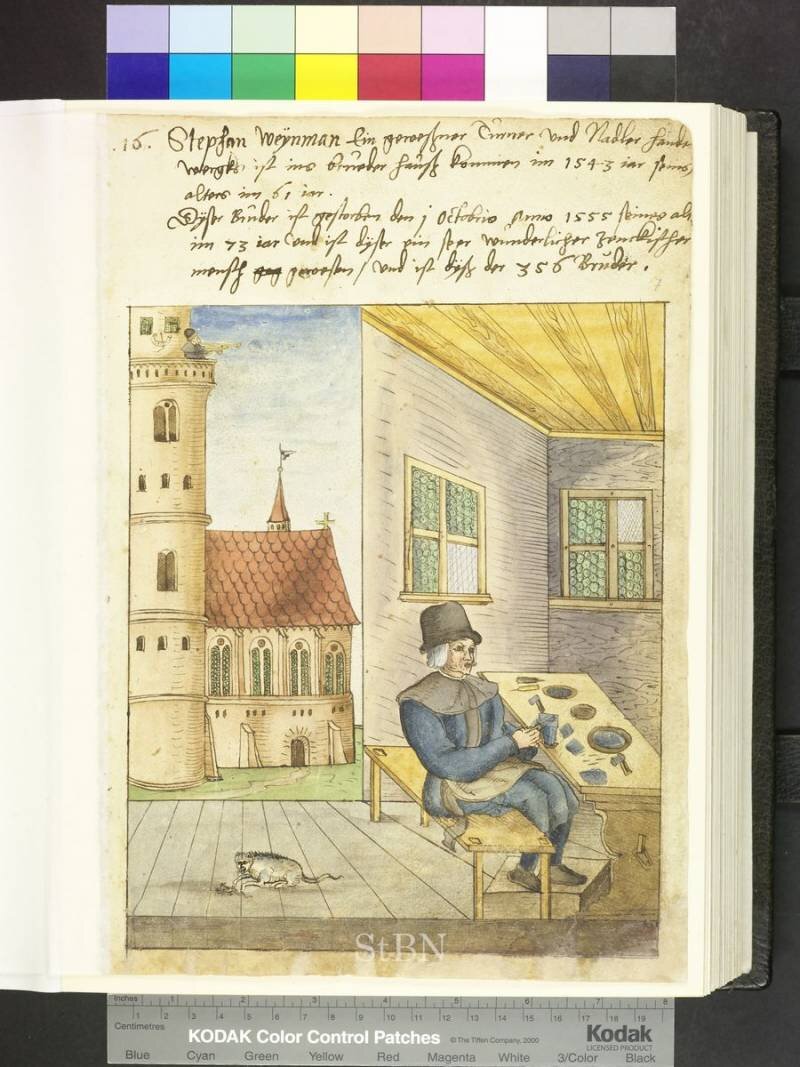 16. Stephan Weÿnman Ein geweßner Türner und Nadler handt
wergks ist ins brueder hauß kommen im 1543 iar seins
alters im 61 iar.
Dÿser Bruder ist gestorben den 1 Octobris Anno 1555 seines alt
im 73 iar Und ist dÿser ein seer wunderlicher zenckischer
mensch gewesen / Und ist dÿß der 356 Bruder.
7
StBN
Inches 1 2 3 4 5 6 7 8
Centimetres 1 2 3 4 5 6 7 8 9 10 11 12 13 14 15 16 17 18 19
KODAK Color Control Patches © The Tiffen Company, 2000 Kodak
LICENSED PRODUCT
Blue Cyan Green Yellow Red Magenta White 3/Color Black